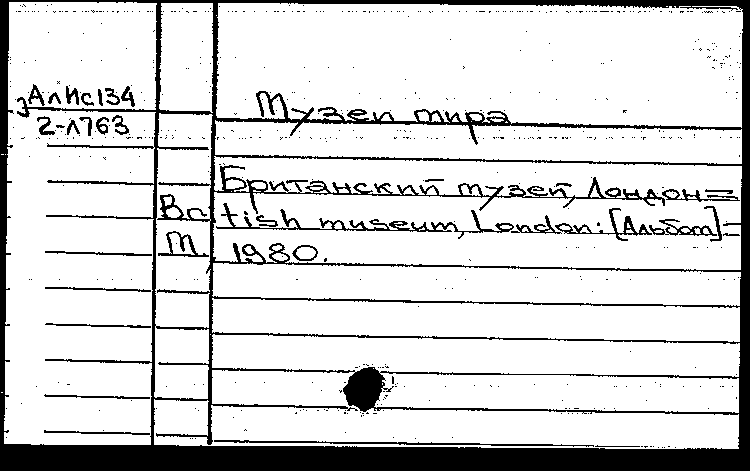 зАлИс134
2-л763
Музеи мира
Британский музей, Лондон =
Bri tish museum, London: [Альбом] =
М., 1980.